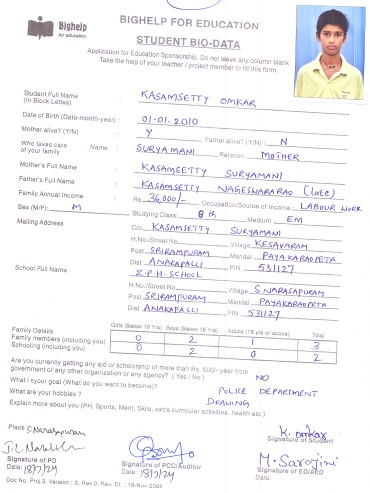 Bighelp
for education
BIGHELP FOR EDUCATION
STUDENT BIO-DATA
Application for Education Sponsorship. Do not leave any column blank
Take the help of your teacher / project member to fill this form
Student Full Name : KASAMSETTY OMKAR
(in Block Letters)
Date of Birth (Date-month-year) : 01-01-2010
Mother alive? (Y/N) : Y Father alive? (Y/N) : N
Who takes care Name : SURYAMANI Relation : MOTHER
of your family
Mother's Full Name : KASAMSETTY SURYAMANI
Father's Full Name : KASAMSETTY NAGESWARARAO (late)
Family Annual Income : Rs. 36,000/- Occupation/Source of Income : LABOUR WORK
Sex (M/F): M Studying Class: 8th Medium EM
Mailing Address C/o. KASAMSETTY SURYAMANI
H.No./Street No. Village KESAVARAM
Post SRIRAMPURAM Mandal PAYAKARAOPETA
Dist ANAKAPALLI PIN 531127
School Full Name : Z.P.H. SCHOOL
H.No./Street No. Village S.NARASAPURAM
Post SRIRAMPURAM Mandal PAYAKARAOPETA
Dist ANAKAPALLI PIN 531127
Family Details Girls (Below 18 Yrs) Boys (Below 18 Yrs) Adults (18 yrs or above) Total
Family members (including you) 0 2 1 3
Schooling (including you) 0 2 0 2
Are you currently getting any aid or scholarship of more than Rs. 500/- year from
government or any other organization or any agency? (Yes / No) NO
What is your goal (What do you want to become)? POLICE DEPARTMENT
What are your hobbies ? DRAWING
Explain more about you (PH, Sports, Merit, Skills, extra curricular activities, health etc.)
Place S.Narasapuram
K. omkar
Signature of Student
M. Sarojini
Signature of PD
Date:
Signature of PCC/Auditor
Date:
Signature of ED/AED
Date:
Doc No. Proj.3, Version : 3, Rev.0, Rev. Dt. : 16-Nov-2004